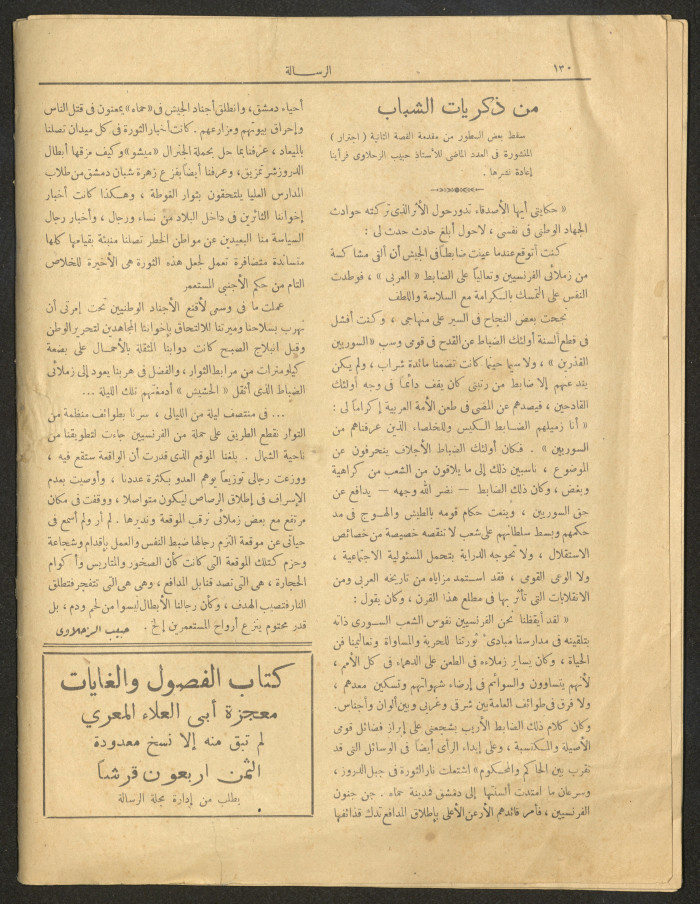 ١٣٠
الرسالة
من ذكريات الشباب
سقط بعض السطور من مقدمة القصة الثانية ( اجترار )
المنشورة في العدد الماضي للأستاذ حبيب الزحلاوي فرأينا
إعادة نشرها .
« حكايتي أيها الأصدقاء تدور حول الأثر الذي تركته حوادث
الجهاد الوطني في نفسي ، لا حول أبلغ حادث حدث لي :
كنت أتوقع عندما عينت ضابطاً في الجيش أن ألقى مشاكسة
من زملائي الفرنسيين وتعالياً على الضابط « العربي » ، فوطدت
النفس على التمسك بالكرامة مع السلاسة واللطف
نجحت بعض النجاح في السير على منهاجي ، وكنت أفشل
في قطع ألسنة أولئك الضباط عن القدح في قومي وسب « السوريين
القذرين » ، ولا سيما حينما كانت تضمنا مائدة شراب ، ولم يكن
يندعنهم إلا ضابط من رتبتي كان يقف دائماً في وجه أولئك
القادحين ، فيصدهم عن المضي في طعن الأمة العربية إكراماً لي :
« أنا زميلهم الضابط الكيس وللخلصاء الذين عرفناهم من
السوريين » . فكان أولئك الضباط الأجلاف ينحرفون عن
الموضوع ، ناسبين ذلك إلى ما يلاقون من الشعب من كراهية
وبغض ، وكان ذلك الضابط — نضر الله وجهه — يدافع عن
حق السوريين ، وينعت حكام قومه بالطيش والهوج في مد
حكمهم وبسط سلطانهم على شعب لا تنقصه خصيصة من خصائص
الاستقلال ، ولا تحوجه الدراية بتحمل المسئولية الاجتماعية ،
ولا الوعي القومي ، فقد استمد مزاياه من تاريخه العربي ومن
الانقلابات التي تأثر بها في مطلع هذا القرن ، وكان يقول :
« لقد أيقظنا نحن الفرنسيين نفوس الشعب السوري ذاته
بتلقينه في مدارسنا مبادئ ثورتنا للحرية والمساواة وتعاليمنا فن
الحياة ، وكان يساير زملاءه في الطعن على الدهماء في كل الأمم ،
لأنهم يتساوون والسوائم في إرضاء شهواتهم وتسكين معدهم ،
ولا فرق في طوائف العامة بين شرقي وغربي وبين ألوان وأجناس .
وكان كلام ذلك الضابط الأريب يشجعني على إبراز فضائل قومي
الأصيلة والمكتسبة ، وعلى إبداء الرأي أيضاً في الوسائل التي قد
تقرب بين الحاكم والمحكوم » اشتعلت نار الثورة في جبل الدروز ،
وسرعان ما امتدت ألسنتها إلى دمشق فمدينة حماه . جن جنون
الفرنسيين ، فأمر قائدهم الأرعن الأعلى بإطلاق المدافع تدك قذائفها
أحياء دمشق ، وانطلق أجناد الجيش في « حماه » يمعنون في قتل الناس
وإحراق بيوتهم ومزارعهم . كانت أخبار الثورة في كل ميدان تصلنا
بالميعاد ، عرفنا بما حل بحملة الجنرال « ميشو » وكيف مزقها أبطال
الدروز شر تمزيق ، وعرفنا أيضاً بفزع زهرة شبان دمشق من طلاب
المدارس العليا يلتحقون بثوار الغوطة ، وهكذا كانت أخبار
إخواننا الثائرين في داخل البلاد من نساء ورجال ، وأخبار رجال
السياسة منا البعيدين عن مواطن الخطر تصلنا منبئة بقيامها كلها
متساندة متضافرة تعمل لجعل هذه الثورة هي الأخيرة للخلاص
التام من حكم الأجنبي المستعمر
عملت ما في وسعي لأقنع الأجناد الوطنيين تحت إمرتي أن
نهرب بسلاحنا وميرتنا للالتحاق بإخواننا المجاهدين لتحرير الوطن
وقبل انبلاج الصبح كانت دوابنا المثقلة بالأحمال على بضعة
كيلومترات من مرابط الثوار ، والفضل في هربنا يعود إلى زملائي
الضباط الذي أثقل « الحشيش » أدمغتهم تلك الليلة ...
... في منتصف ليلة من الليالي ، سرنا بطوائف منظمة من
الثوار نقطع الطريق على حملة من الفرنسيين جاءت لتطويقنا من
ناحية الشمال . بلغنا الموقع الذي قدرت أن الواقعة ستقع فيه ،
ووزعت رجالي توزيعاً يوهم العدو بكثرة عددنا ، وأوصيت بعدم
الإسراف في إطلاق الرصاص ليكون متواصلا ، ووقفت في مكان
مرتفع مع بعض زملائي نرقب الموقعة وندبرها . لم أر ولم أسمع في
حياتي عن موقعة التزم رجالها ضبط النفس والعمل بإقدام وشجاعة
وحزم كتلك الموقعة التي كانت كأن الصخور والمتاريس وأكوام
الحجارة ، هي التي تصد قنابل المدافع ، وهي هي التي تتفجر فتطلق
النار فتصيب الهدف ، وكأن رجالنا الأبطال ليسوا من لحم ودم ، بل
قدر محتوم ينزع أرواح المستعمرين إلخ . حبيب الزحلاوي
كتاب الفصول والغايات
معجزة أبي العلاء المعري
لم تبق منه إلا نسخ معدودة
الثمن اربعون قرشا
يطلب من إدارة مجلة الرسالة